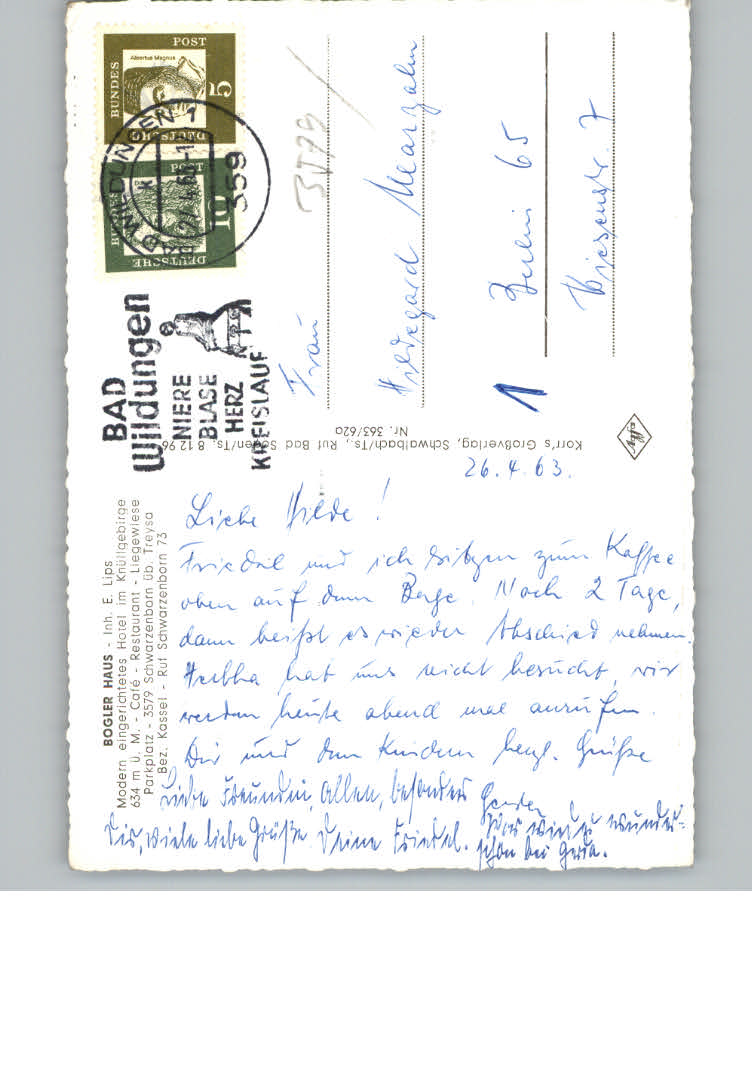 BOGLER HAUS - Inh. E. Lips
Modern eingerichtetes Hotel im Knüllgebirge
634 m ü. M. - Café - Restaurant - Liegewiese
Parkplatz - 3579 Schwarzenborn üb. Treysa
Bez. Kassel - Ruf Schwarzenborn 73
26.4.63.
Liebe Hilde!
Friedel und ich sitzen zum Kaffee
oben auf dem Berge. Noch 2 Tage,
dann heißt es wieder Abschied nehmen.
hat uns nicht besucht, wir
werden heute abend mal anrufen.
Dir und den Kindern herzl. Grüße
Gerda
Liebe Freundin, allen, besonders
Dir, viele liebe Grüße Deine Friedel. wunder-
schön bei Gerda.
Korr's Großverlag, Schwalbach/Ts., Ruf Bad Soden/Ts. 8 12 96
Nr. 363/62a
Agfa
BAD
Wildungen
NIERE
BLASE
HERZ
KREISLAUF
BAD WILDUNGEN 1
359
27.4.63
DEUTSCHE
BUNDES
POST
Albertus Magnus
5
DEUTSCHE
BUNDES
POST
10
3579
Frau
Hildegard
1
Berlin 65
Wiesenstr. 7